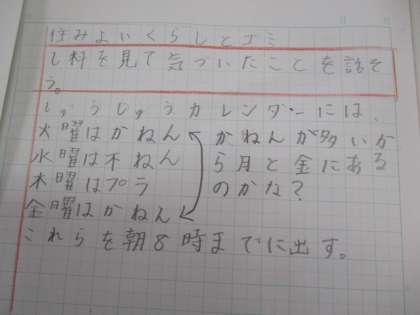 住みよいくらしとゴミ
し料を見て気づいたことを話そ
う。
しゅうしゅうカレンダーには、
火曜はかねん
水曜は不ねん
木曜はプラ
金曜はかねん
かねんが多いか
ら月と金にある
のかな?
これらを朝8時までに出す。